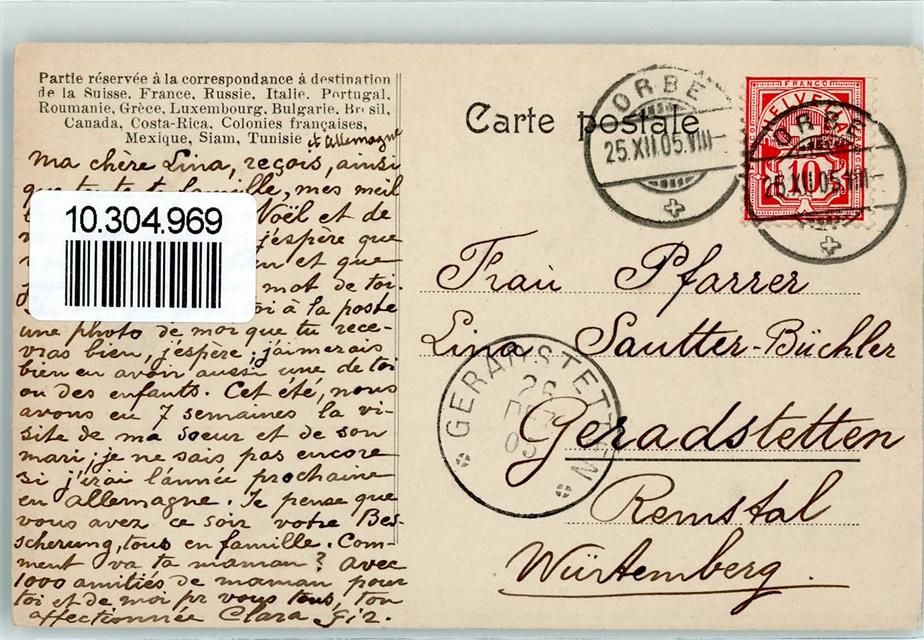 Partie réservée à la correspondance à destination
de la Suisse, France, Russie, Italie, Portugal,
Roumanie, Grèce, Luxembourg, Bulgarie, Brésil,
Canada, Costa-Rica, Colonies françaises,
Mexique, Siam, Tunisie et Allemagne
Ma chère Lina, reçois, ainsi
que ta famille, mes meil
Noël et de
j'espère que
en et que
mot de toi.
toi à la poste
une photo de moi que tu rece-
vras bien, j'espère; j'aimerais
bien en avoir aussi une de toi
ou des enfants. Cet été, nous
avons eu 7 semaines la vi-
site de ma soeur et de son
mari; je ne sais pas encore
si j'irai l'année prochaine
en Allemagne. Je pense que
vous avez ce soir votre Bes-
scherung, tous en famille. Com-
ment va ta maman? Avec
1000 amitiés de maman pour
toi et de moi pr vous tous, ton
affectionnée Clara
10.304.969
Carte postale
ORBE
25.XII.05.VIII
FRANCO
HELVETIA
10
ORBE
25.XII.05.VIII
Frau Pfarrer
Lina Sautter-Büchler
Geradstetten
Remstal
Würtemberg.
GERADSTETTEN
26
DEZ
05